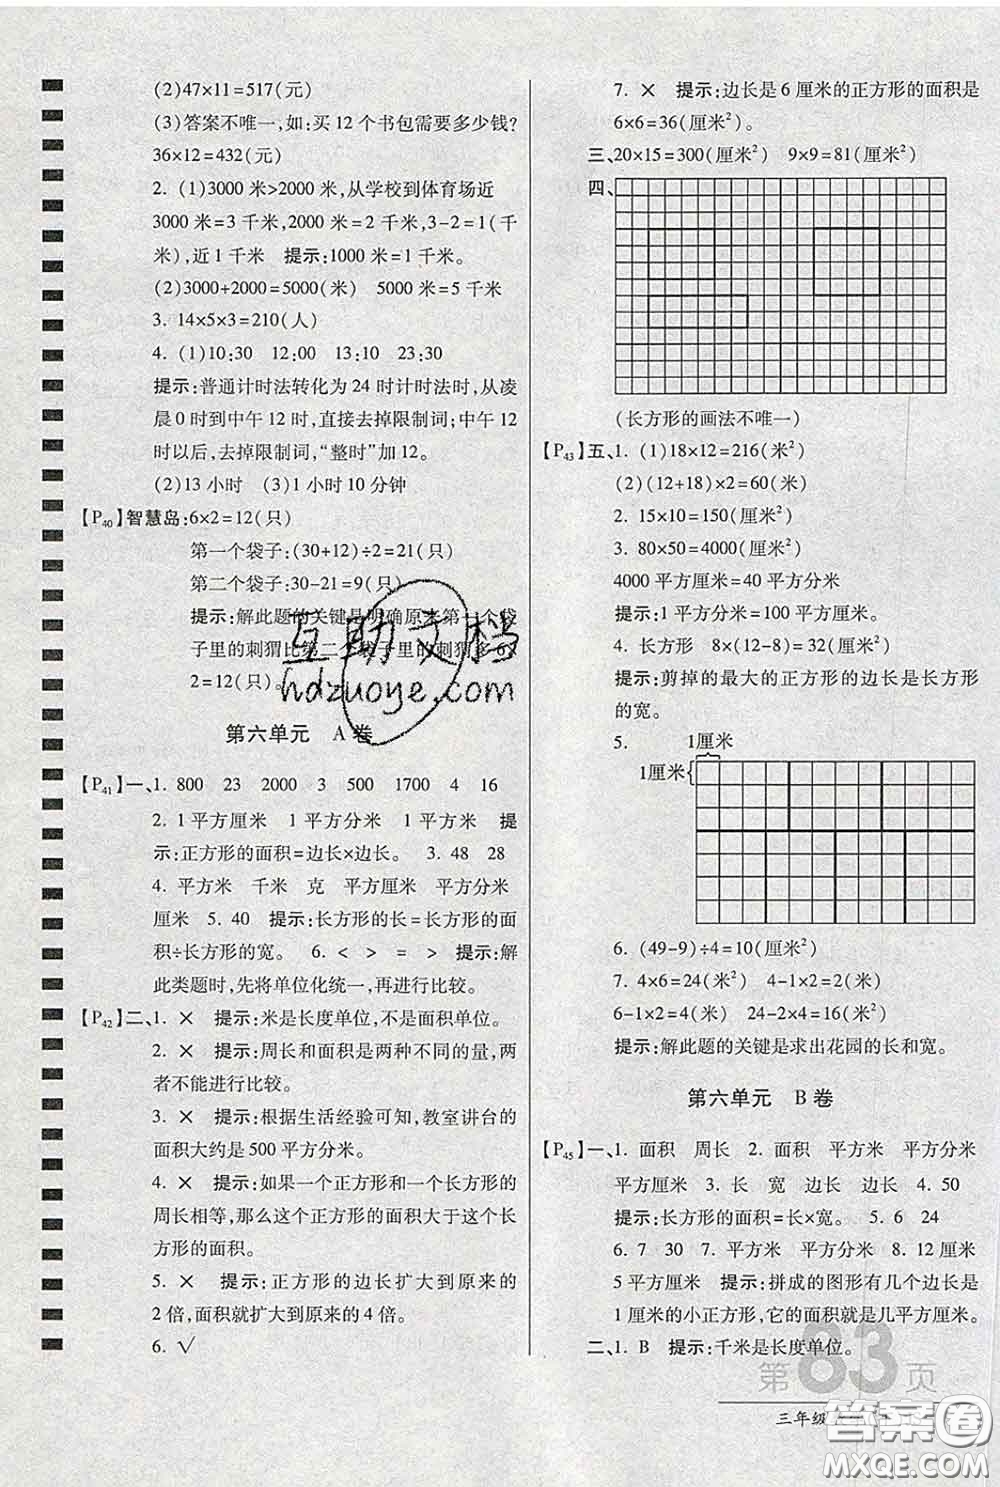 (2)47×11=517(元)
(3)答案不唯一,如:买 12 个书包需要多少钱?
36×12=432(元)
2. (1)3000 米>2000 米,从学校到体育场近
3000 米=3 千米,2000 米=2 千米,3-2=1(千
米),近 1 千米　提示:1000 米=1 千米。
(2)3000+2000=5000(米)　5000米=5 千米
3. 14×5×3=210(人)
4. (1)10:30　12:00　13:10　23:30
提示:普通计时法转化为 24 时计时法时,从凌
晨 0 时到中午 12 时,直接去掉限制词;中午 12
时以后,去掉限制词,“整时”加 12。
(2)13 小时　(3)1 小时 10 分钟
【P40】智慧岛:6×2=12(只)
第一个袋子:(30+12)÷2=21(只)
第二个袋子:30-21=9(只)
提示:解此题的关键是明确原来第一个袋
子里的刺猬比第二个袋子里的刺猬多6×
2=12(只)。
第六单元　A 卷
【P41】一、1. 800　23　2000　3　500　1700　4　16
2. 1 平方厘米　1 平方分米　1 平方米　提
示:正方形的面积=边长×边长。　3. 48　28
4. 平方米　千米　克　平方厘米　平方分米
厘米　5. 40　提示:长方形的长=长方形的面
积÷长方形的宽。　6. <　>　=　>　提示:解
此类题时,先将单位化统一,再进行比较。
【P42】二、1. ×　提示:米是长度单位,不是面积单位。
2. ×　提示:周长和面积是两种不同的量,两
者不能进行比较。
3. ×　提示:根据生活经验可知,教室讲台的
面积大约是 500 平方分米。
4. ×　提示:如果一个正方形和一个长方形的
周长相等,那么这个正方形的面积大于这个长
方形的面积。
5. ×　提示:正方形的边长扩大到原来的
2 倍,面积就扩大到原来的 4 倍。
6. √
7. ×　提示:边长是 6 厘米的正方形的面积是
6×6=36(厘米²)。
三、20×15=300(厘米²)　9×9=81(厘米²)
四、
(长方形的画法不唯一)
【P43】五、1. (1)18×12=216(米²)
(2)(12+18)×2=60(米)
2. 15×10=150(厘米²)
3. 80×50=4000(厘米²)
4000 平方厘米=40 平方分米
提示:1 平方分米=100 平方厘米。
4. 长方形　8×(12-8)=32(厘米²)
提示:剪掉的最大的正方形的边长是长方形
的宽。
5.　1厘米
1厘米
6. (49-9)÷4=10(厘米²)
7. 4×6=24(米²)　4-1×2=2(米)
6-1×2=4(米)　24-2×4=16(米²)
提示:解此题的关键是求出花园的长和宽。
第六单元　B 卷
【P45】一、1. 面积　周长　2. 面积　平方米　平方分米
平方厘米　3. 长　宽　边长　边长　4. 50
提示:长方形的面积=长×宽。　5. 6　24
6. 7　30　7. 平方米　平方分米　8. 12 厘米
5 平方厘米　提示:拼成的图形有几个边长是
1 厘米的小正方形,它的面积就是几平方厘米。
二、1. B　提示:千米是长度单位。
第83页
三年级
互助文档
hdzuoye.com
答案圈
MXQE.COM